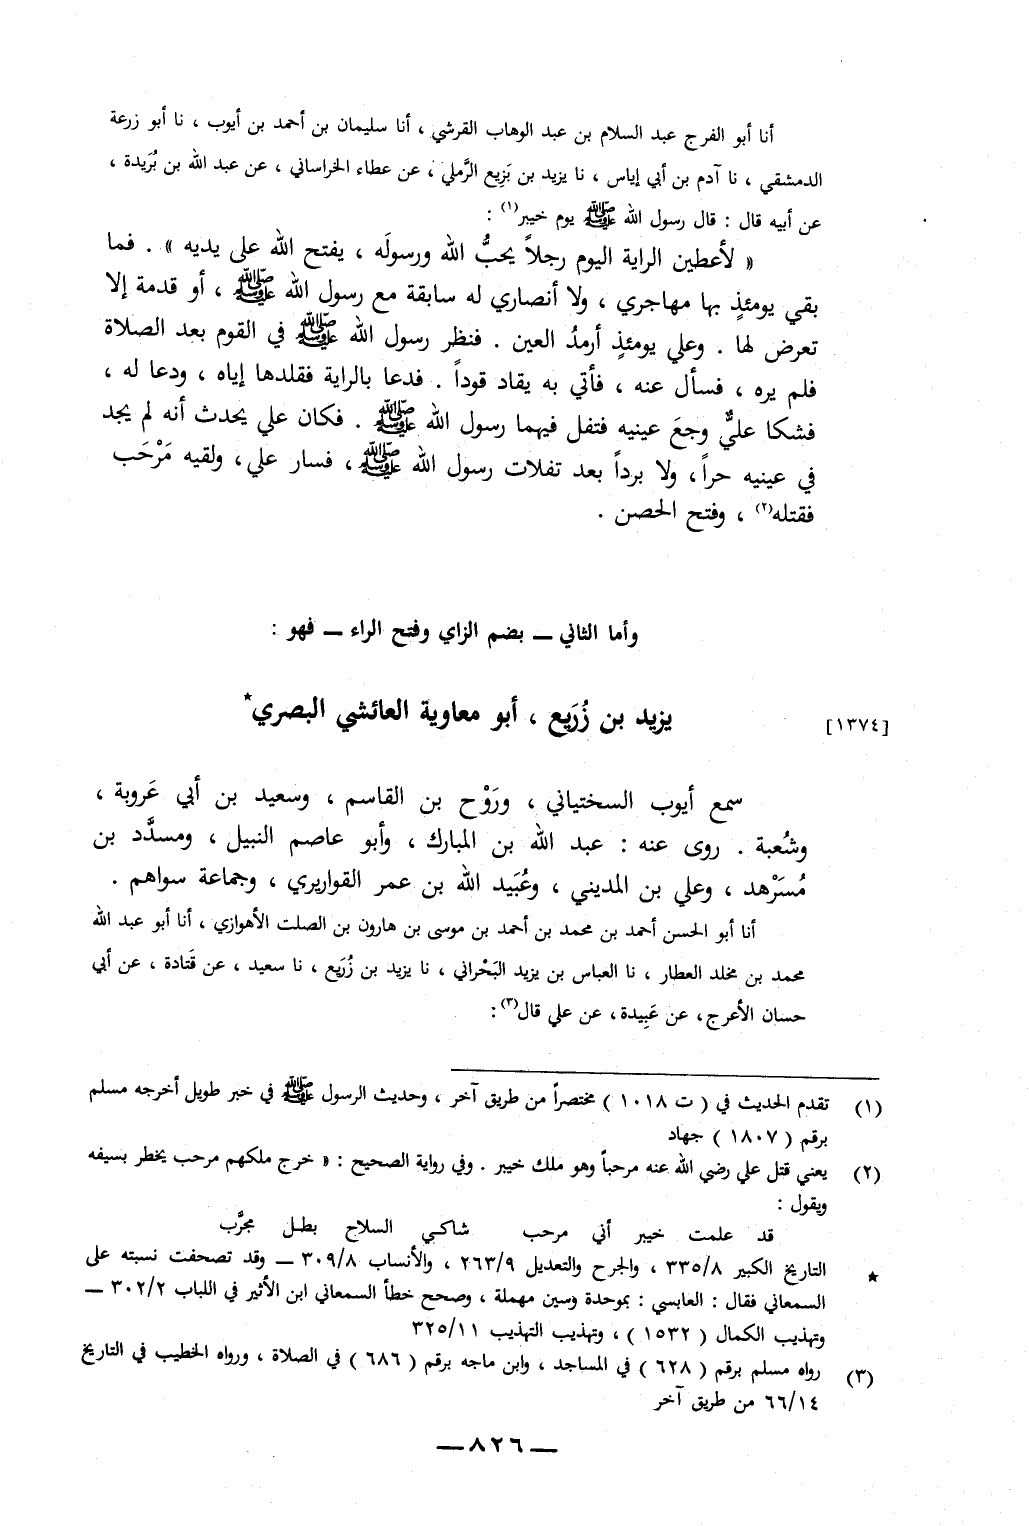 أنا أبو الفرج عبد السلام بن عبد الوهاب القرشي ، أنا سليمان بن أحمد بن أيوب ، نا أبو زرعة
الدمشقي ، نا آدم بن أبي إياس ، نا يزيد بن بَزِيع الرَّملي ، عن عطاء الخراساني ، عن عبد الله بن بُرَيدة ،
عن أبيه قال : قال رسول الله ﷺ يوم خيبر(١) :
« لأعطين الراية اليوم رجلاً يحبُّ الله ورسولَه ، يفتح الله على يديه » . فما
بقي يومئذٍ بها مهاجري ، ولا أنصاري له سابقة مع رسول الله ﷺ ، أو قدمة إلا
تعرض لها . وعلي يومئذٍ أرمدُ العين . فنظر رسول الله ﷺ في القوم بعد الصلاة
فلم يره ، فسأل عنه ، فأتي به يقاد قوداً . فدعا بالراية فقلدها إياه ، ودعا له ،
فشكا عليٌّ وجعَ عينيه فتفل فيهما رسول الله ﷺ . فكان علي يحدث أنه لم يجد
في عينيه حراً ، ولا برداً بعد تفلات رسول الله ﷺ ، فسار علي ، ولقيه مَرْحَب
فقتله(٢) ، وفتح الحصن .
وأما الثاني ــ بضم الزاي وفتح الراء ــ فهو :
[١٣٧٤] يزيد بن زُرَيع ، أبو معاوية العائشي البصري*
سمع أيوب السختياني ، ورَوْح بن القاسم ، وسعيد بن أبي عَروبة ،
وشُعبة . روى عنه : عبد الله بن المبارك ، وأبو عاصم النبيل ، ومسدَّد بن
مُسَرْهد ، وعلي بن المديني ، وعُبَيد الله بن عمر القواريري ، وجماعة سواهم .
أنا أبو الحسن أحمد بن محمد بن أحمد بن موسى بن هارون بن الصلت الأهوازي ، أنا أبو عبد الله
محمد بن مخلد العطار ، نا العباس بن يزيد البَحْراني ، نا يزيد بن زُرَيع ، نا سعيد ، عن قَتادة ، عن أبي
حسان الأعرج ، عن عَبِيدة ، عن علي قال(٣) :
(١) تقدم الحديث في ( ت ١٠١٨ ) مختصراً من طريق آخر ، وحديث الرسول ﷺ في خبر طويل أخرجه مسلم
برقم ( ١٨٠٧ ) جهاد
(٢) يعني قتل علي رضي الله عنه مرحباً وهو ملك خيبر . وفي رواية الصحيح : « خرج ملكهم مرحب يخطر بسيفه
ويقول :
قد علمت خيبر أني مرحب شاكي السلاح بطل مجرَّب
★ التاريخ الكبير ٣٣٥/٨ ، والجرح والتعديل ٢٦٣/٩ ، والأنساب ٣٠٩/٨ ــ وقد تصحفت نسبته على
السمعاني فقال : العابسي : بموحدة وسين مهملة ، وصحح خطأ السمعاني ابن الأثير في اللباب ٣٠٢/٢ ــ
وتهذيب الكمال ( ١٥٣٢ ) ، وتهذيب التهذيب ٣٢٥/١١
(٣) رواه مسلم برقم ( ٦٢٨ ) في المساجد ، وابن ماجه برقم ( ٦٨٦ ) في الصلاة ، ورواه الخطيب في التاريخ
٦٦/١٤ من طريق آخر
ــ ٨٢٦ ــ